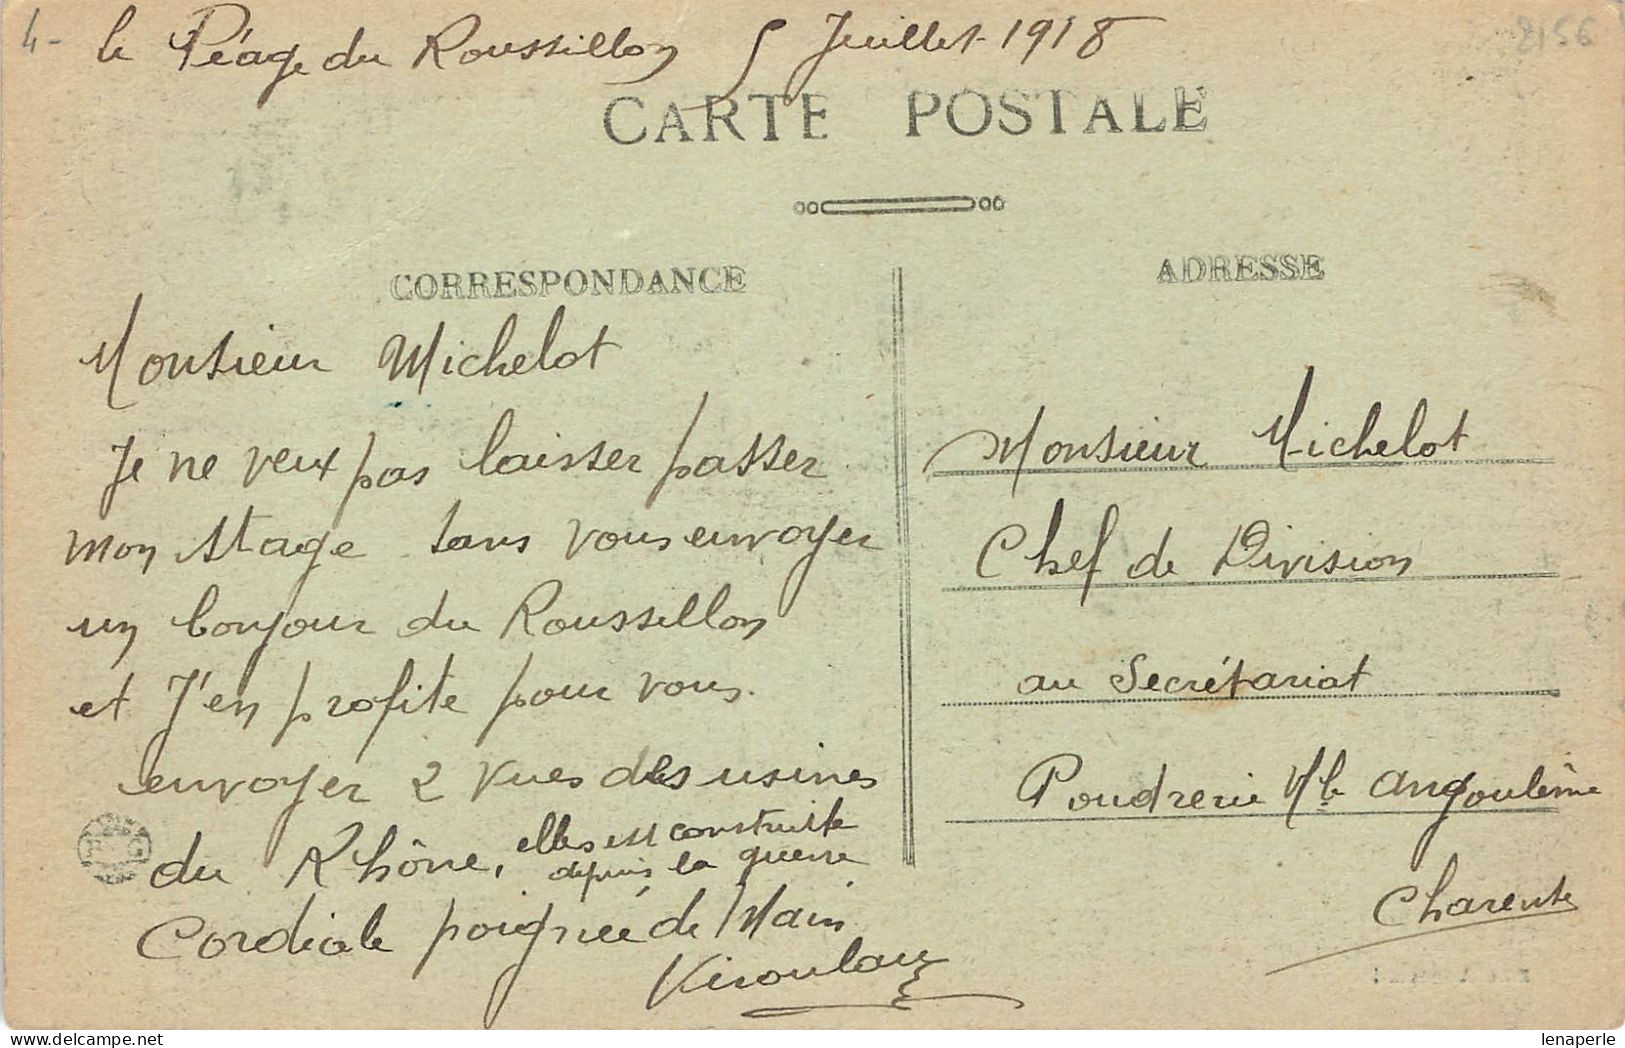 4-
2156
le Péage du Roussillon 5 Juillet 1918
CARTE POSTALE
CORRESPONDANCE
Monsieur Michelot
Je ne veux pas laisser passer
mon stage sans vous envoyer
un bonjour du Roussillon
et J'en profite pour vous
envoyer 2 vues des usines
du Rhône, elles est construite
depuis la guerre
Cordiale poignée de Main
ADRESSE
Monsieur Michelot
Chef de Division
au Secrétariat
Poudrerie Nle Angoulême
Charente
https://www.delcampe.net
lenaperle